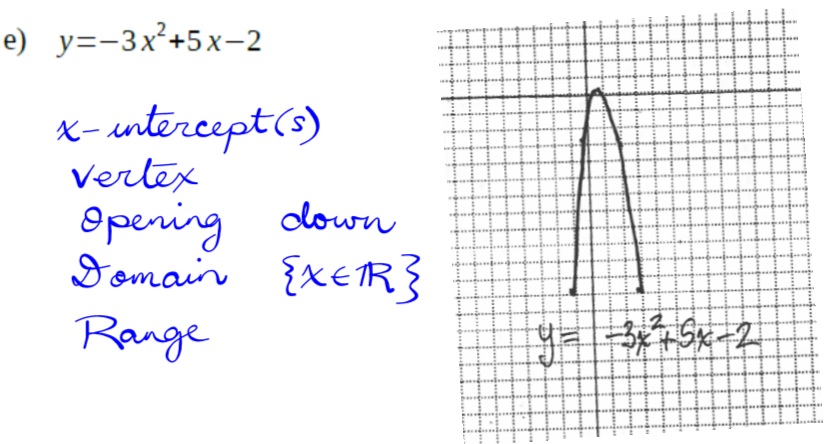 e) y=−3x²+5x−2
x-intercept(s)
Vertex
Opening down
Domain {x∈ℝ}
Range
y= -3x²+5x-2